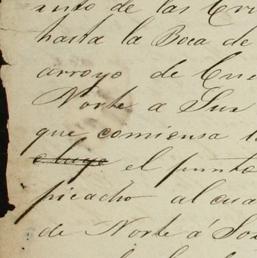 de las
hasta la Boca de
arroyo de
Norte a Sur
que comiensa
el punto
picacho al cua
de Norte á So